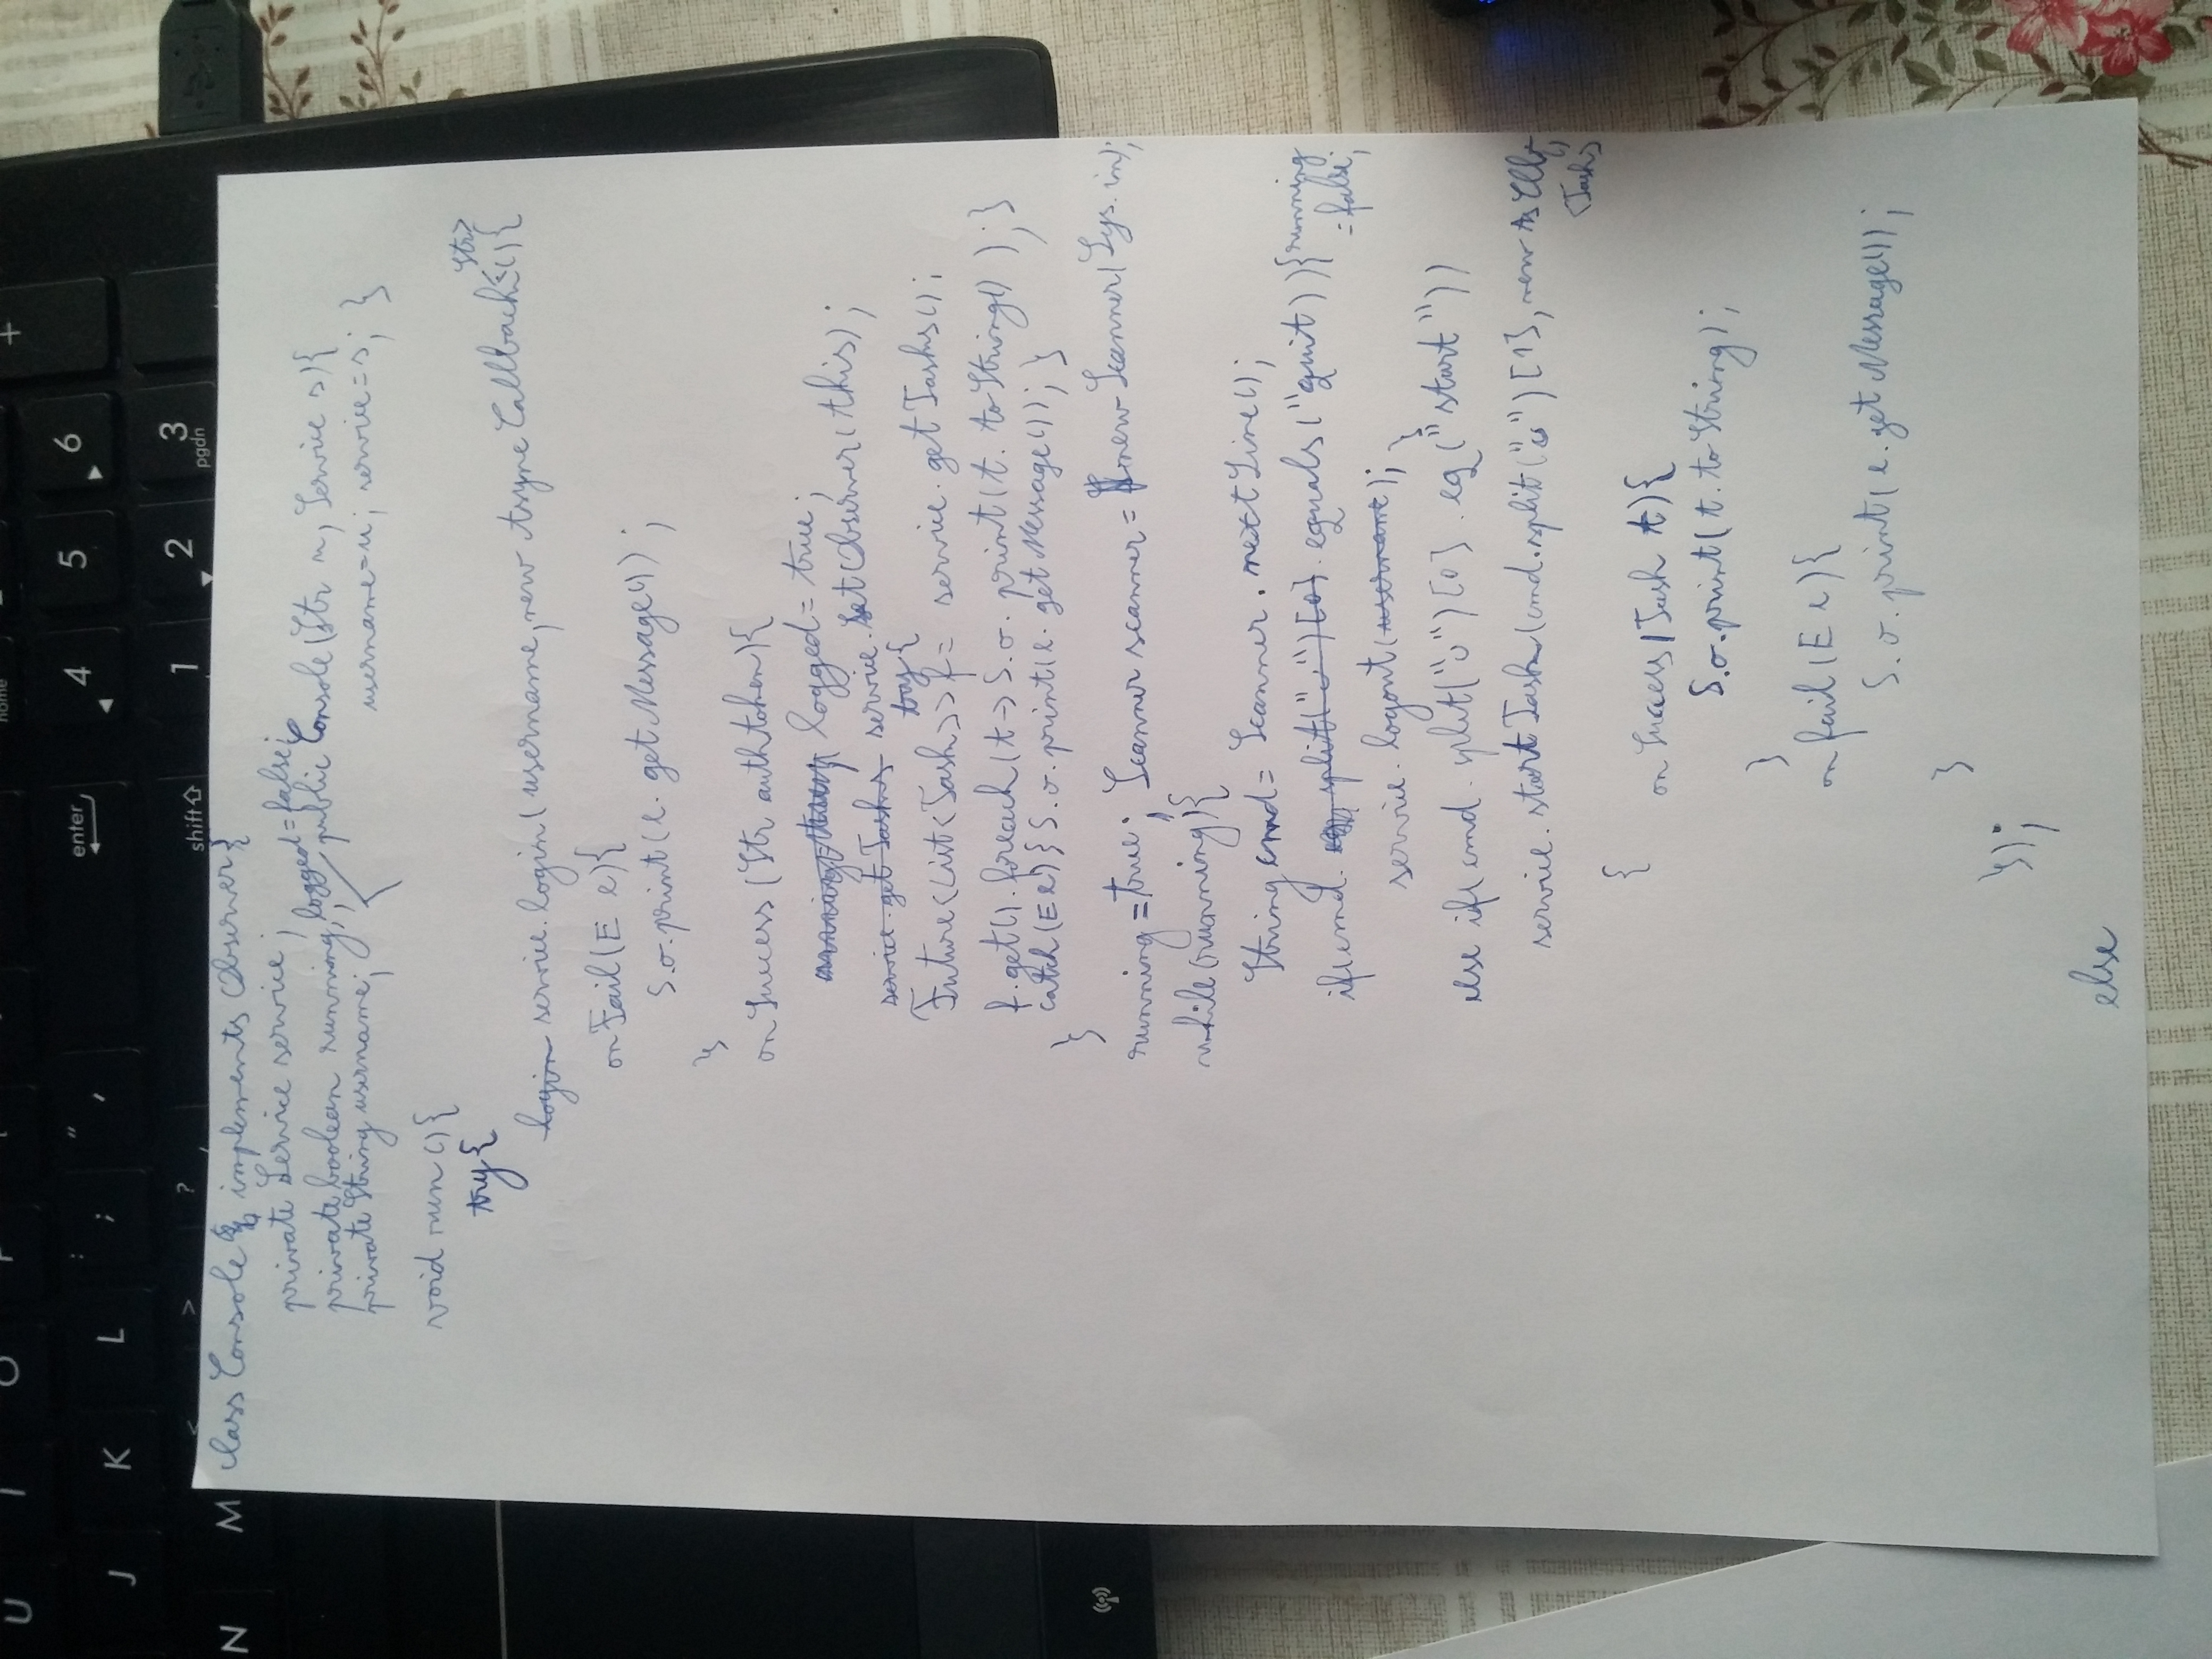 U I O P home +
J K L : ; " ' enter 4 5 6
N M < > ? shift 1 2 3 pgdn
class Console implements Observer{
private Service service;
private boolean running, logged=false;
private String username;
public Console(Str u, Service s){
username=u; service=s; }
void run(){
try{
login service.login(username, new AsyncCallback<Str>(){
onFail(E e){
S.o.print(e.getMessage());
}
onSuccess(Str authtoken){
logged= true;
service.getTasks service.setObserver(this);
try{
Future<List<Task>> f= service.getTasks();
f.get().foreach(t-> S.o.print(t.toString() ); }
catch(E e){ S.o.print(e.getMessage()); }
}
running=true; Scanner scanner= new Scanner(Sys.in);
while(running){
String cmd= Scanner.nextLine();
if(cmd. split("␣")[0]. equals("quit")){running
=false;
service.logout(username); }
else if(cmd.split("␣")[0].eq("start"))
service.startTask(cmd.split("␣")[1], new
<Task>
{
onSuccess(Task t){
S.o.print(t.toString);
}
onfail(E e){
S.o.print(e.getMessage());
}
});
else